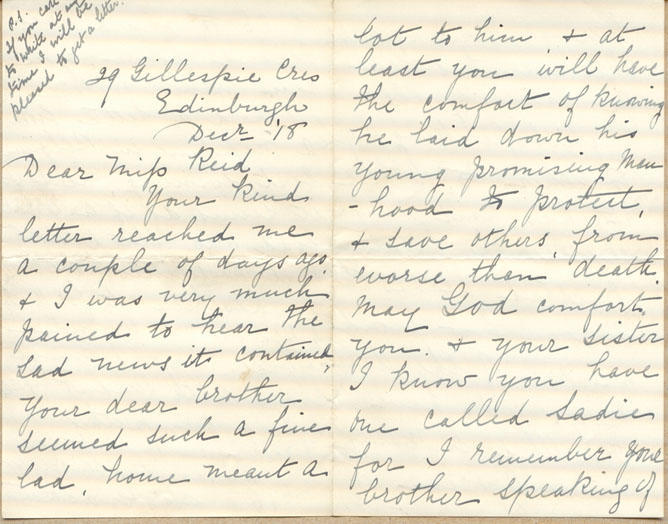 P.S.
If you care
to write at any
time I will be
pleased to get a letter.
29 Gillespie Cres
Edinburgh
Decr '18
Dear Miss Reid
Your kind
letter reached me
a couple of days ago,
& I was very much
pained to hear the
sad news it contained,
your dear brother
seemed such a fine
lad, home meant a
lot to him & at
least you will have
the comfort of knowing
he laid down his
young promising man
-hood to protect,
& save others, from
worse than death.
May God comfort
you. & your sister
I know you have
one called Sadie
for I remember your
brother speaking of